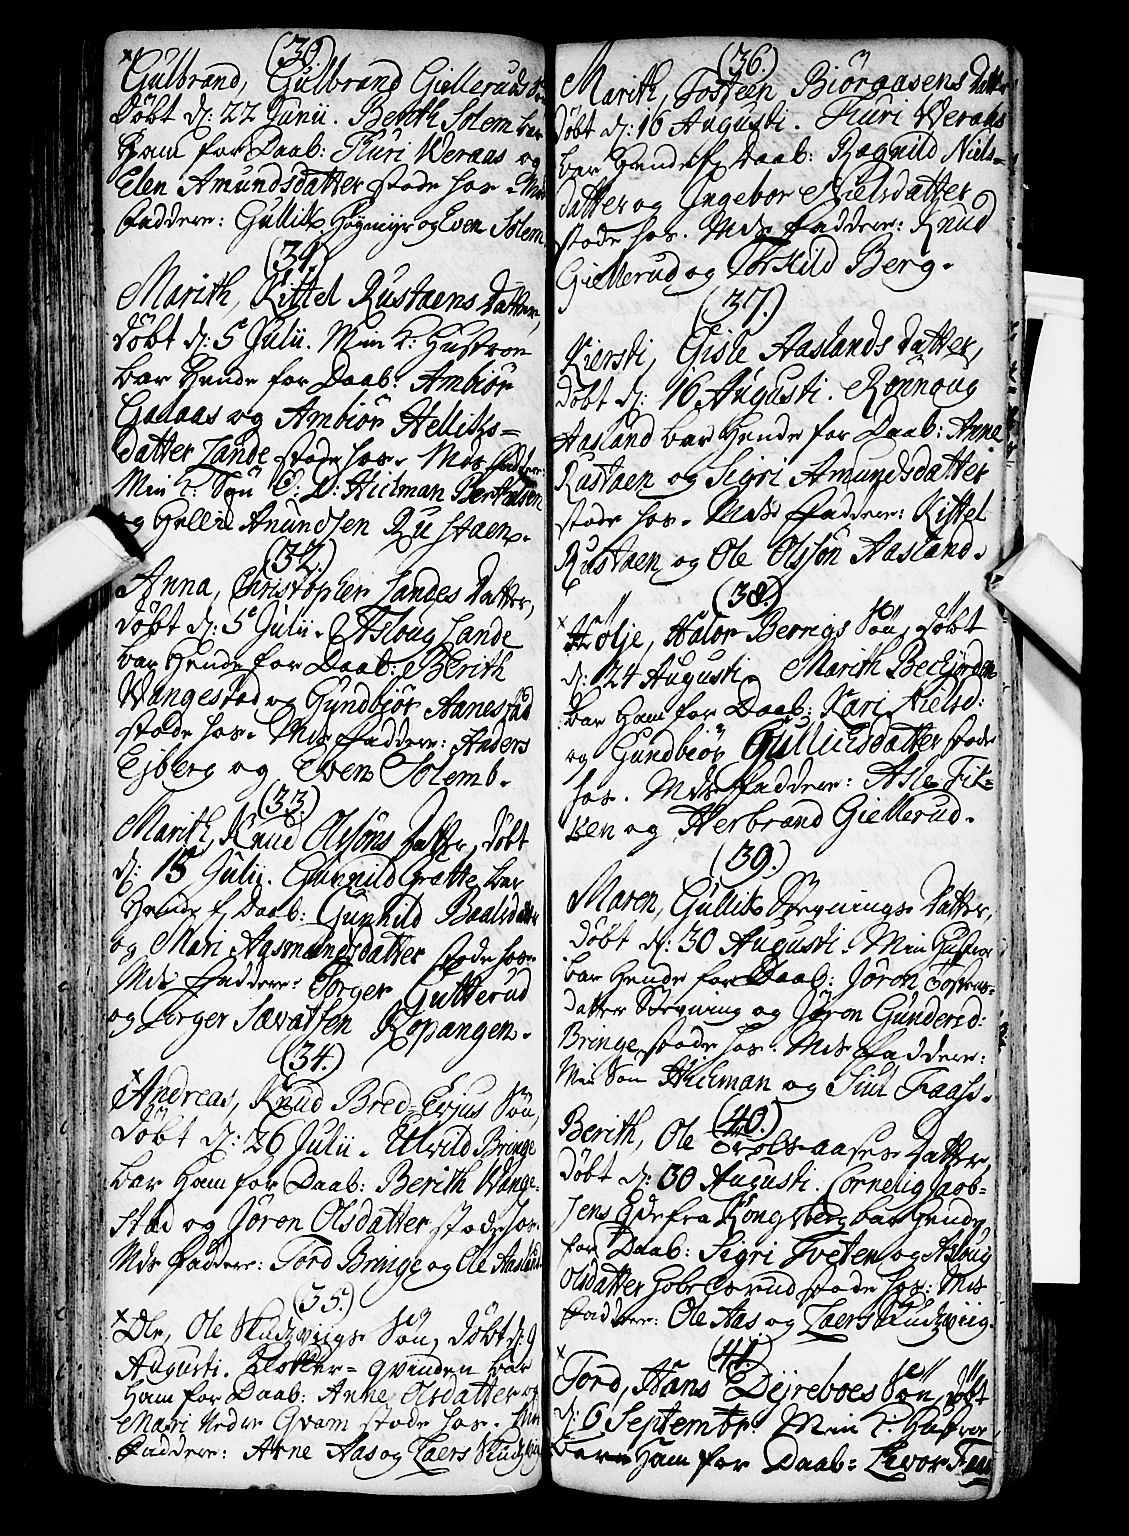 (30.)
Gulbrand, Gulbrand Giellerud
Döbt d: 22 Junii. Berith Solem bar
Ham for Daab: Thuri Weraas og
Elen Amundsdatter stode hos. Mds
Faddere: Gullik Högmyr og Even Solem
(31.)
Marith, Kittel Rustaens Datter,
döbt d: 5 Julii. Min K: Hustroe
bar Hende for Daab: Ambiör
Gataas og Ambiör Helliks=
datter Lande stode hos. Mds Faddere:
Min K: Sön C: D: Hitman Berthelsen
og Hellic Anundsen Rustaen.
(32.)
Anna, Christopher Landes Datter,
döbt d: 5 Julii. Asloug Lande
bar Hende for Daab: Berith
Wangestad og Gundbiör Aanestad
stode hos. Mds Faddere: Anders
Ejberg og Even Solemb.
(33.)
Marith, Knud Olssöns Datter, döbt
d: 15 Julii. Gunnild Grøtte bar
Hende f. Daab: Gunhild Baalsdatter
og Mari Aasmundsdatter stode hos.
Mds Faddere: Torger Gutterud
og Torger Sævatsen Kopangen.
(34.)
× Andreas, Knud Bred=Evjus Sön,
Döbt d: 26 Julii. Elvild Bringe
bar Ham for Daab: Berith Wange=
stad og Jören Olsdatter stode hos.
Mds Faddere: Tord Bringe og Ole Aasland
(35.)
× Ole, Ole Skudzviigs Sön, döbt d: 9
Augusti. Klokker=qvinden bar
Ham for Daab: Anne Olsdatter og
Mari Nedre Qvam stode hos. Mds
Faddere: Arne Aas og Laers Skudzviig
(36.)
Marith, Tosteen Biörgaasens Datter
döbt d: 16 Augusti. Thuri Weraas
bar Hende f. Daab: Ragnild Niels=
datter og Ingebor Nielsdatter
stode hos. Mds Faddere: Knud
Giellerud og Torkild Berg.
(37.)
Kiersti, Gisle Aaslands Datter,
döbt d: 16 Augusti. Rönnoug
Aasland bar Hende for Daab: Anne
Rustaen og Sigri Amundsdatter
stode hos. Mds Faddere: Kittel
Rustaen og Ole Olssön Aasland.
(38.)
× Hölje, Halor Bernigs Sön, döbt
d: 24 Augusti. Marith Beckjorden
bar Ham for Daab: Kari Nielsd:
og Gundbiör Gulliksdatter stode
hos. Mds Faddere: Asle Fik=
ken og Herbrand Giellerud.
(39.)
Maren, Gullik Skrevnings Datter,
döbt d: 30 Augusti. Min Hustroe
bar Hende for Daab: Jören Tostens=
datter Skrevning og Jören Gundersd:
Bringe stode hos. Mds Faddere:
Min Sön Hitman og Siul Faass.
(40.)
Berith, Ole Trolsaases Datter,
döbt d: 30 Augusti. Cornelig Jacob=
sens Ede fra Kongsberg bar Hende
for Daab: Sigri Tveten og Asloug
Olsdatter stode hos: Mds
Faddere: Ole Aas og Laers Skudzviig.
(41.)
× Tord, Hans Dejreboes Sön, döbt
d: 6 Septembr: Min K: Hustroe
bar Ham for Daab: Livor Faas